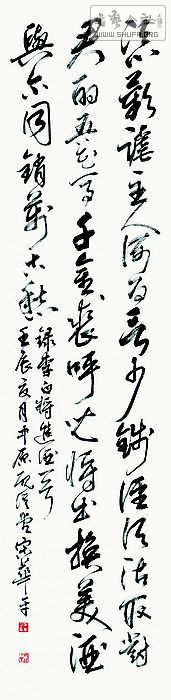 恣歡謔主人何為言少錢徑須沽取對
君酌五花馬千金裘呼兒將出換美酒
與爾同銷萬古愁
錄李白將進酒一首
壬辰夏月中原
宋華平
WWW.SHUFA.ORG